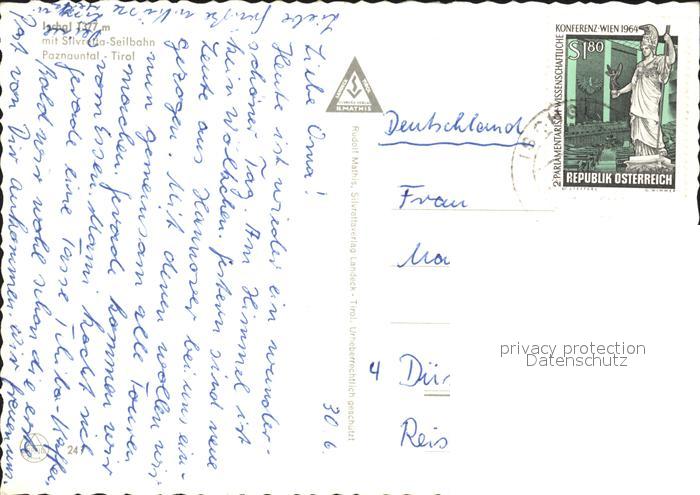 Ischgl 1377 m
mit Silvretta-Seilbahn
Paznauntal - Tirol
Liebe Oma!
Heute ist wieder ein wunder-
schöner Tag. Am Himmel ist
kein Wölkchen. Gestern sind neue
Leute aus Hannover bei uns ein-
gezogen. Mit denen wollen wir
nun gemeinsam alle Touren
machen. Gerade kommen wir
vom Essen. Mami kocht sich
gerade eine Tasse Tchibo-Kaffee.
bald wir wohl schon die erste
Post von Dir
30 6.
RUDOLF MATHIS
Rudolf Mathis, Silvrettaverlag Landeck - Tirol. Urheberrechtlich geschützt
24
2. PARLAMENTARISCH-WISSENSCHAFTLICHE
KONFERENZ-WIEN 1964
S1.80
REPUBLIK ÖSTERREICH
Deutschland
Frau
Ma
4 Dür
Reis
privacy protection
Datenschutz